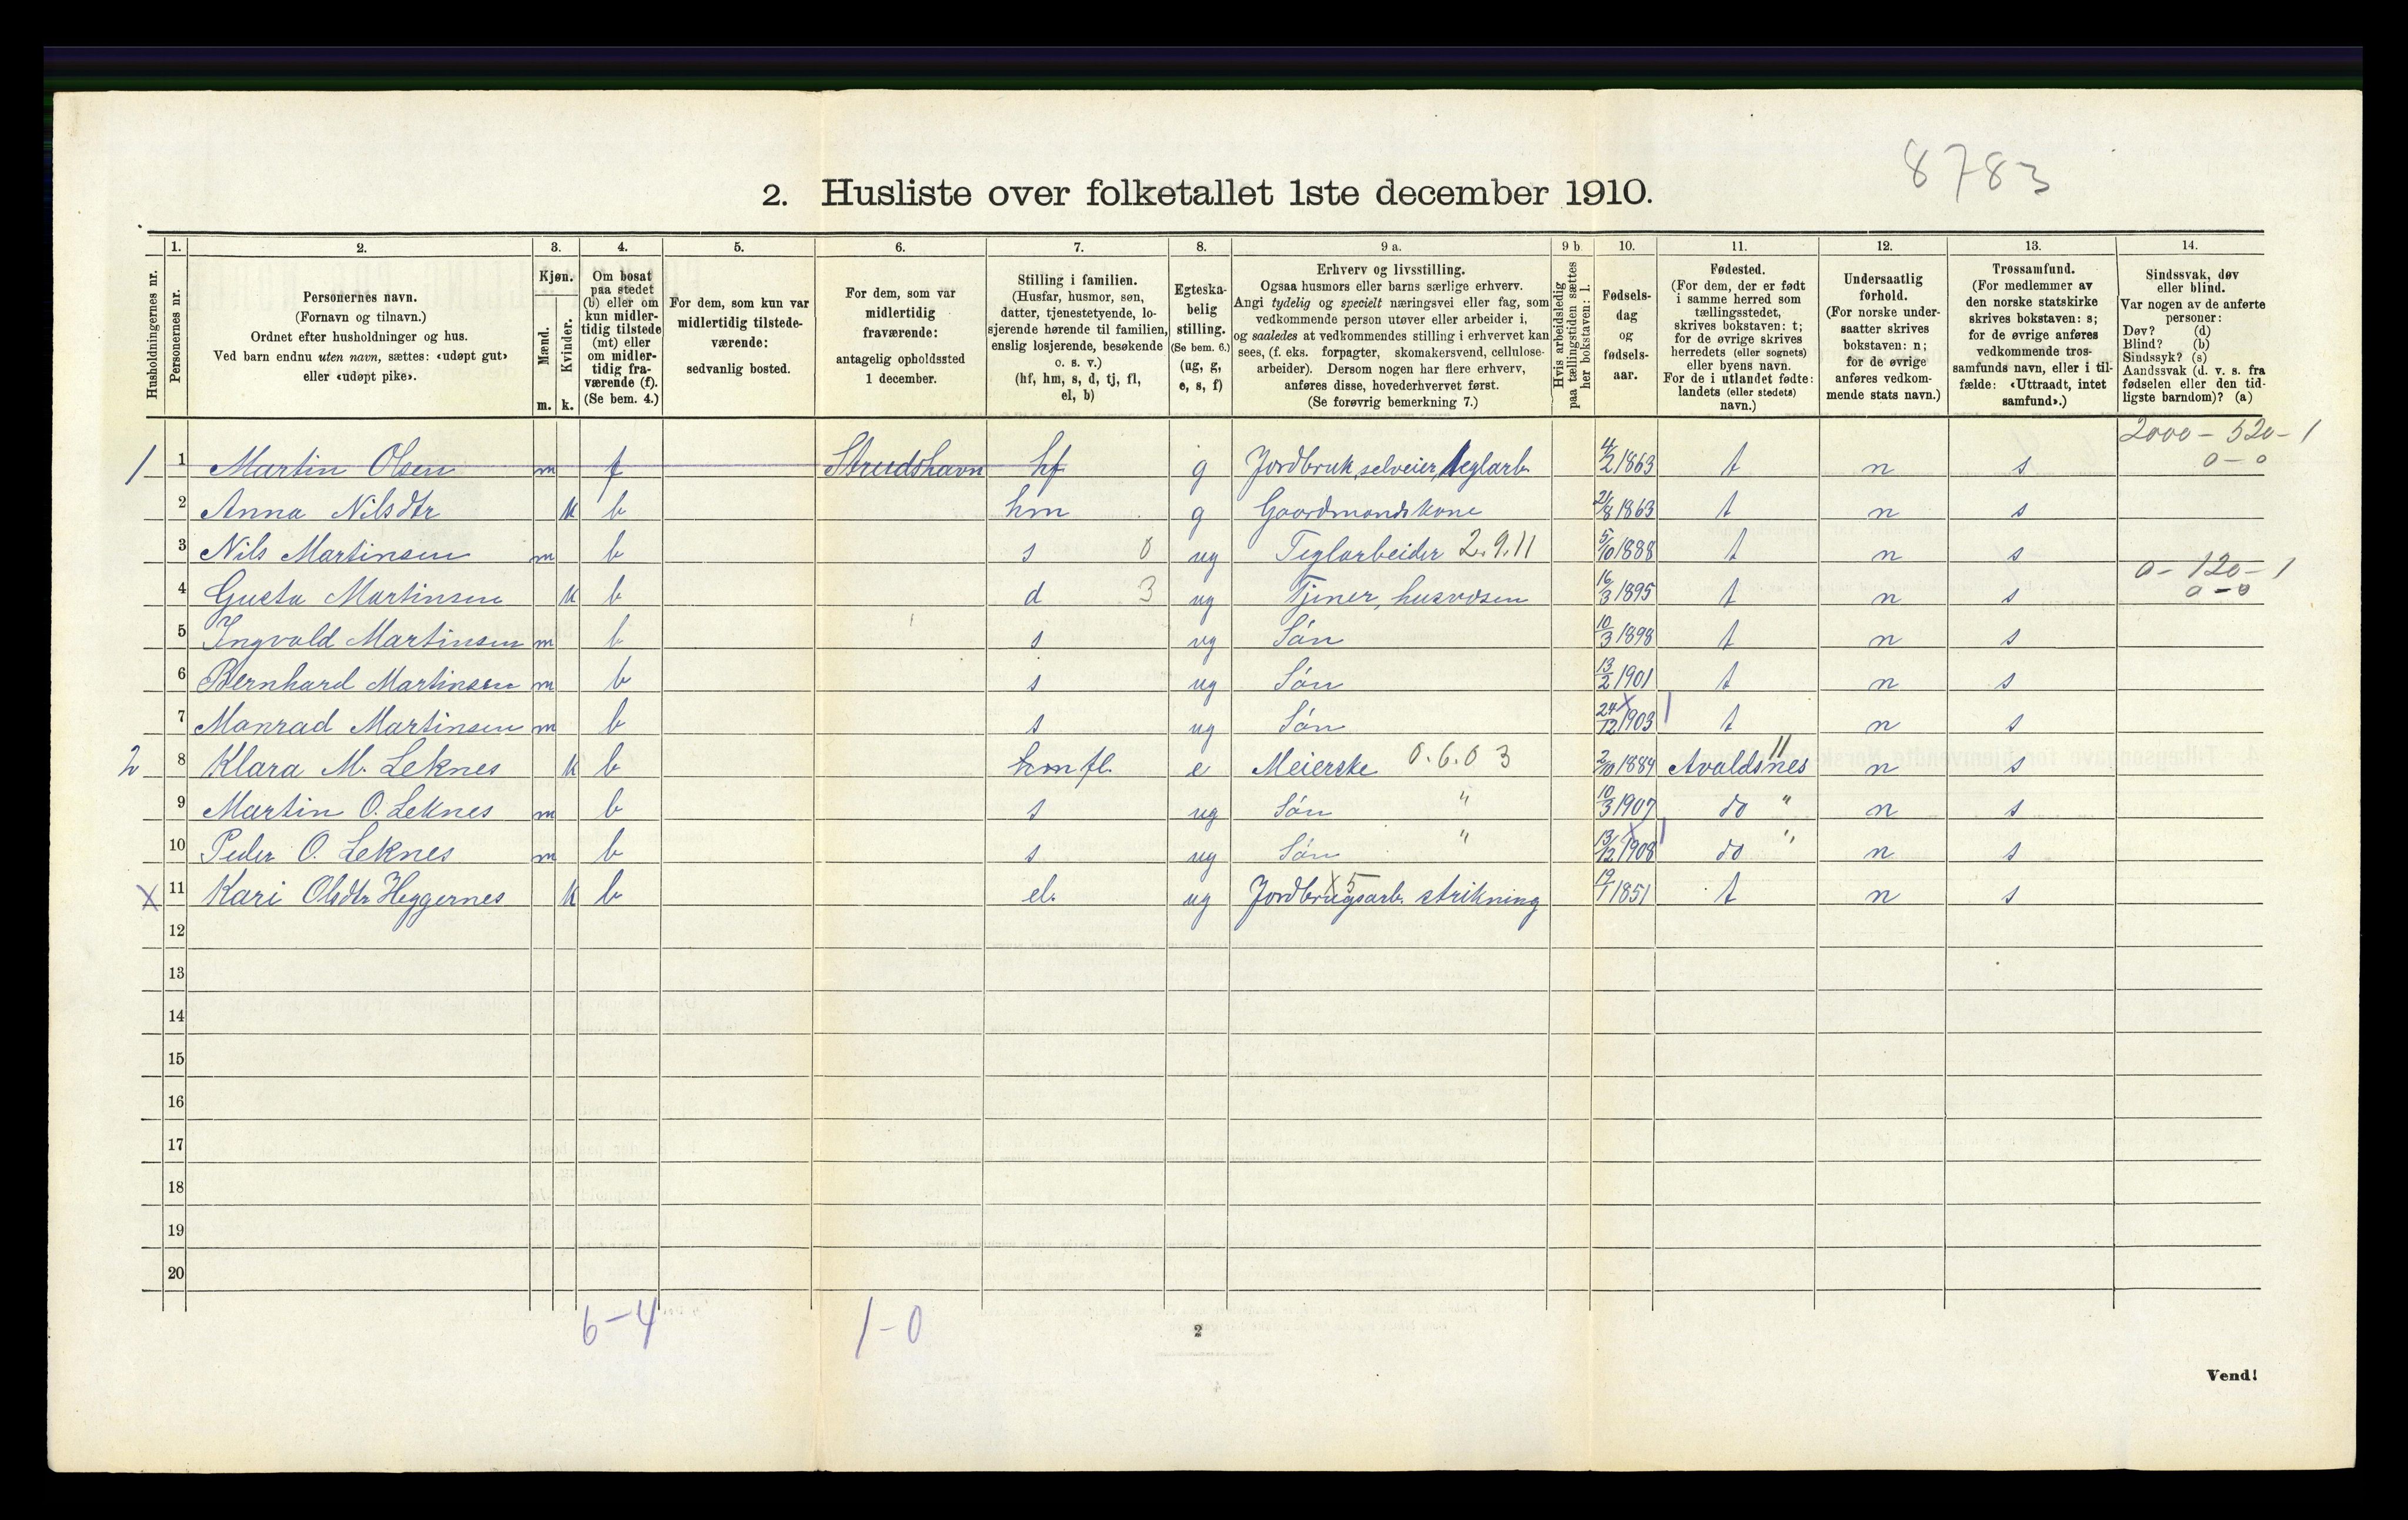 8783
2. Husliste over folketallet 1ste december 1910.
1. 2. 3. 4. 5. 6. 7. 8. 9 a. 9 b 10. 11. 12. 13. 14.
Husholdningernes nr.
Personernes nr.
Personernes navn.
(Fornavn og tilnavn.)
Ordnet efter husholdninger og hus.
Ved barn endnu uten navn, sættes: «udøpt gut»
eller «udøpt pike».
Kjøn.
Mænd.
Kvinder.
m. k.
Om bosat
paa stedet
(b) eller om
kun midler-
tidig tilstede
(mt) eller
om midler-
tidig fra-
værende (f).
(Se bem. 4.)
For dem, som kun var
midlertidig tilstede-
værende:
sedvanlig bosted.
For dem, som var
midlertidig
fraværende:
antagelig opholdssted
1 december.
Stilling i familien.
(Husfar, husmor, søn,
datter, tjenestetyende, lo-
sjerende hørende til familien,
enslig losjerende, besøkende
o. s. v.)
(hf, hm, s, d, tj, fl,
el, b)
Egteska-
belig
stilling.
(Se bem. 6.)
(ug, g,
e, s, f)
Erhverv og livsstilling.
Ogsaa husmors eller barns særlige erhverv.
Angi tydelig og specielt næringsvei eller fag, som
vedkommende person utøver eller arbeider i,
og saaledes at vedkommendes stilling i erhvervet kan
sees, (f. eks. forpagter, skomakersvend, cellulose-
arbeider). Dersom nogen har flere erhverv,
anføres disse, hovederhvervet først.
(Se forøvrig bemerkning 7.)
Hvis arbeidsledig
paa tællingstiden sættes
her bokstaven: l.
Fødsels-
dag
og
fødsels-
aar.
Fødested.
(For dem, der er født
i samme herred som
tællingsstedet,
skrives bokstaven: t;
for de øvrige skrives
herredets (eller sognets)
eller byens navn.
For de i utlandet fødte:
landets (eller stedets)
navn.)
Undersaatlig
forhold.
(For norske under-
saatter skrives
bokstaven: n;
for de øvrige
anføres vedkom-
mende stats navn.)
Trossamfund.
(For medlemmer av
den norske statskirke
skrives bokstaven: s;
for de øvrige anføres
vedkommende tros-
samfunds navn, eller i til-
fælde: «Uttraadt, intet
samfund».)
Sindssvak, døv
eller blind.
Var nogen av de anførte
personer:
Døv? (d)
Blind? (b)
Sindssyk? (s)
Aandssvak (d. v. s. fra
fødselen eller den tid-
ligste barndom)? (a)
2000 - 520 - 1
0 - 0
1 1 Martin Olsen m f Strudshavn hf g Jordbruk, selveier, teglarb. 4/2 1863 t n s
2 Anna Nilsdtr k b hm g Gaardmandskone 21/8 1863 t n s
3 Nils Martinsen m b s 0 ug Teglarbeider 2.9.11 5/10 1888 t n s
0 - 120 - 1
4 Gusta Martinsen k b d 3 ug Tjener, husvæsen 16/3 1895 t n s 0 - 0
5 Ingvald Martinsen m b s ug Søn 10/3 1898 t n s
6 Bernhard Martinsen m b s ug Søn 13/2 1901 t n s
7 Monrad Martinsen m b s ug Søn 24/12 1903 t n s
2 8 Klara M. Leknes k b hm fl. e Meierske 0.6.0 3 2/10 1884 Avaldsnes 11 n s
9 Martin O. Leknes m b s ug Søn " 10/3 1907 do " n s
10 Peder O. Leknes m b s ug Søn " 13/12 1908 do " n s
x 11 Kari Olsdtr Heggernes k b el. ug Jordbrugsarb. strikning x 5 19/1 1851 t n s
12
13
14
15
16
17
18
19
20
6 - 4 1 - 0
2
Vend!